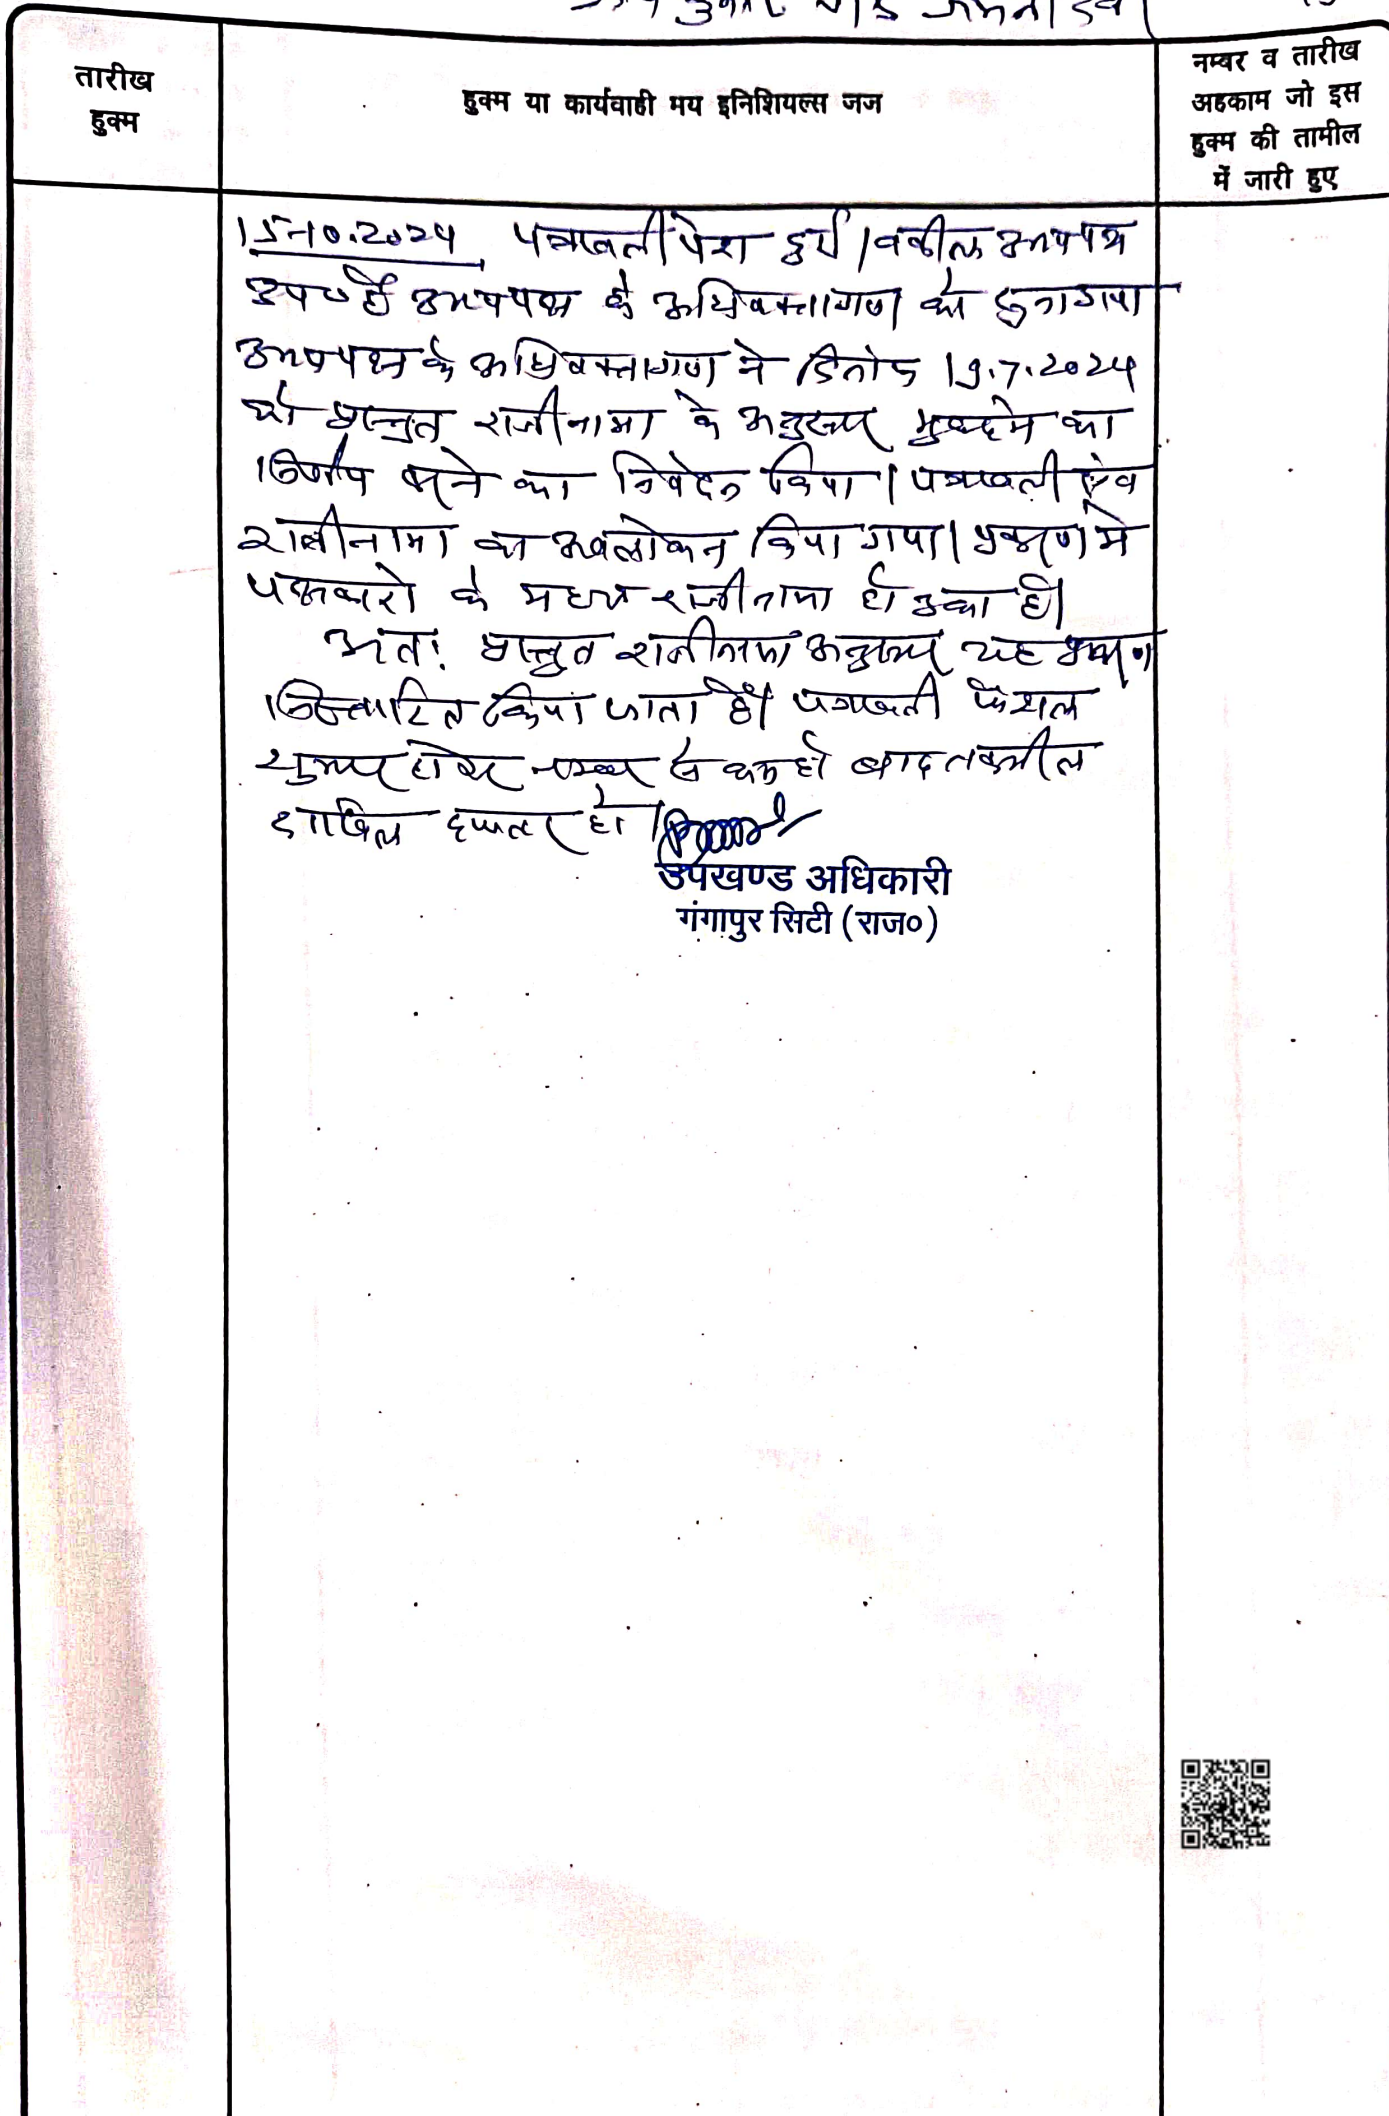 तारीख
हुक्म
हुक्म या कार्यवाही मय इनिशियल्स जज
नम्बर व तारीख
अहकाम जो इस
हुक्म की तामील
में जारी हुए
15-10.2024 पत्रावली पेश हुई। वकील उभयपक्ष
उप० है उभयपक्ष के अधिवक्तागण को सुना गया
उभयपक्ष के अधिवक्तागण ने दिनांक 19.7.2024
को प्रस्तुत राजीनामा के अनुरूप मुकदमे का
निर्णय करने का निवेदन किया। पत्रावली एंव
राजीनामा का अवलोकन किया गया। प्रकरण मे
पक्षकारो के मध्य राजीनामा हो चुका है।
अतः प्रस्तुत राजीनामा अनुरूप यह प्रकरण
निस्तारित किया जाता है। पत्रावली फैसल
शुमार होकर नम्बर से कम हो बाद तकमील
दाखिल दफ्तर हो।
उपखण्ड अधिकारी
गंगापुर सिटी (राज०)